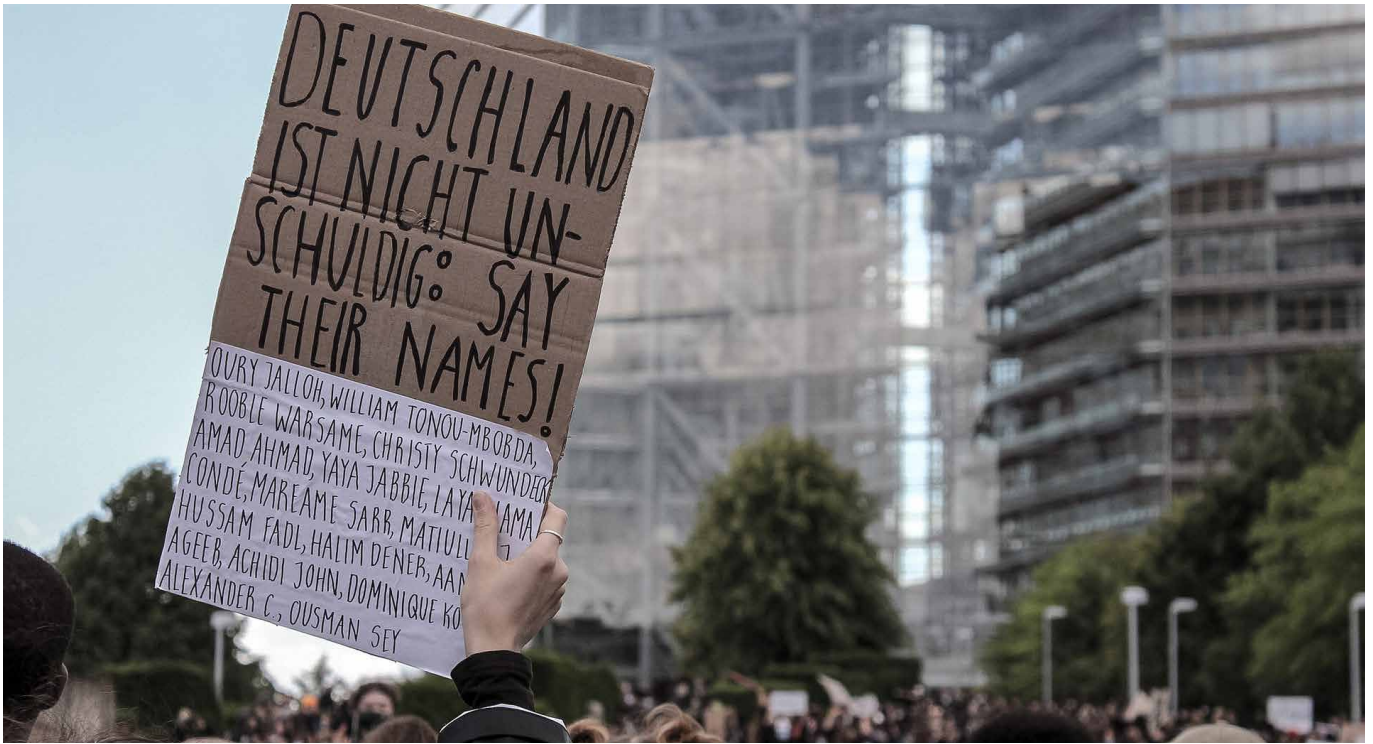 DEUTSCHLAND
IST NICHT UN-
SCHULDIG: SAY
THEIR NAMES!
OURY JALLOH, WILLIAM TONOU-MBOBDA,
ROOBLE WARSAME, CHRISTY SCHWUNDECK
AMAD AHMAD, YAYA JABBIE, LAYA
CONDÉ, MAREAME SARR,
HUSSAM FADL, HALIM DENER,
AGEEB, ACHIDI JOHN, DOMINIQUE
ALEXANDER C., OUSMAN SEY